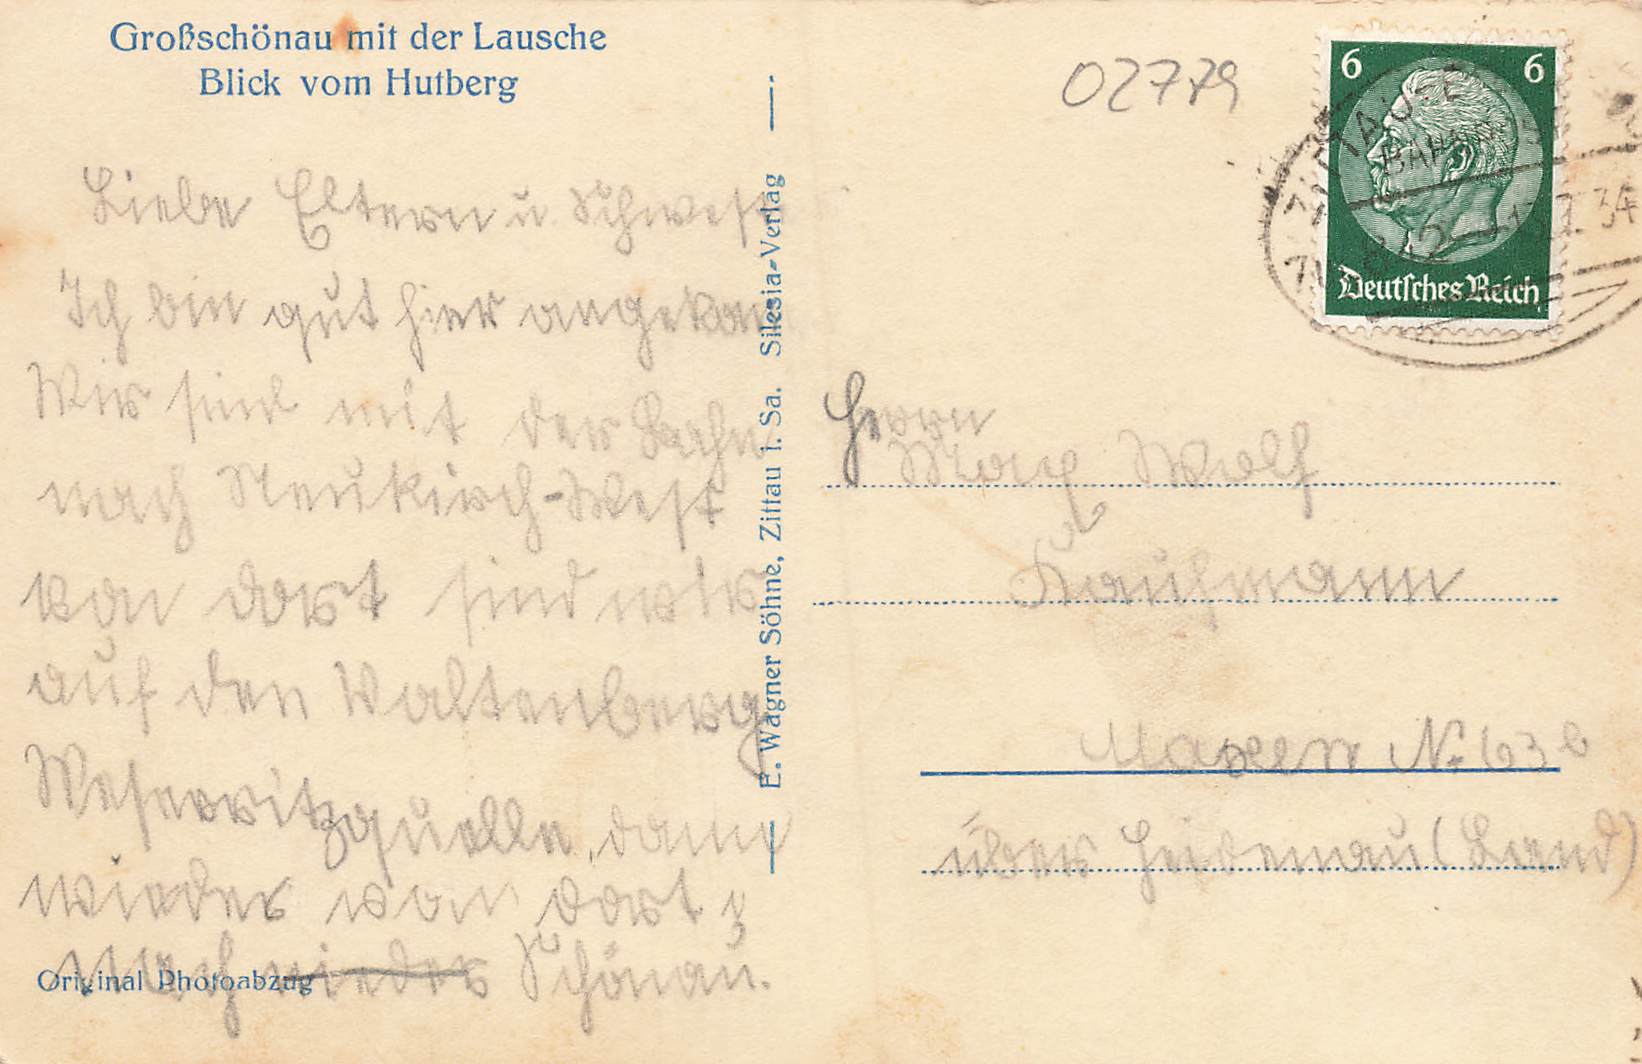 Großschönau mit der Lausche
Blick vom Hutberg
Liebe Eltern u. Schwest
Ich bin gut hier angekom
Wir sind mit der Bahn
nach Neukirch-West
von dort sind wir
auf den Valtenberg
quelle, dann
wieder von dort
nach wieder Schönau.
Original Photoabzug
E. Wagner Söhne, Zittau i. Sa. Silesia-Verlag
02779
6 6
Deutsches Reich
34
Herrn
Max Wolf
Kaufmann
Maxen Nr 63 b
über Heidenau (Land)